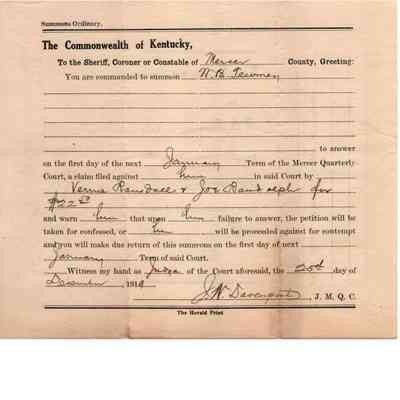 Summons Ordinary.
The Commonwealth of Kentucky,
To the Sheriff, Coroner or Constable of Mercer County, Greeting:
You are commanded to summon W. B.
to answer
on the first day of the next January Term of the Mercer Quarterly
Court, a claim filed against him in said Court by
Vernie Ransdall & Joe Randolph for
$22
and warn him that upon his failure to answer, the petition will be
taken for confessed, or he will be proceeded against for contempt
and you will make due return of this summons on the first day of next
January Term of said Court.
Witness my hand as Judge of the Court aforesaid, the day of
December 191
J. W. Davenport, J. M. Q. C.
The Herald Print